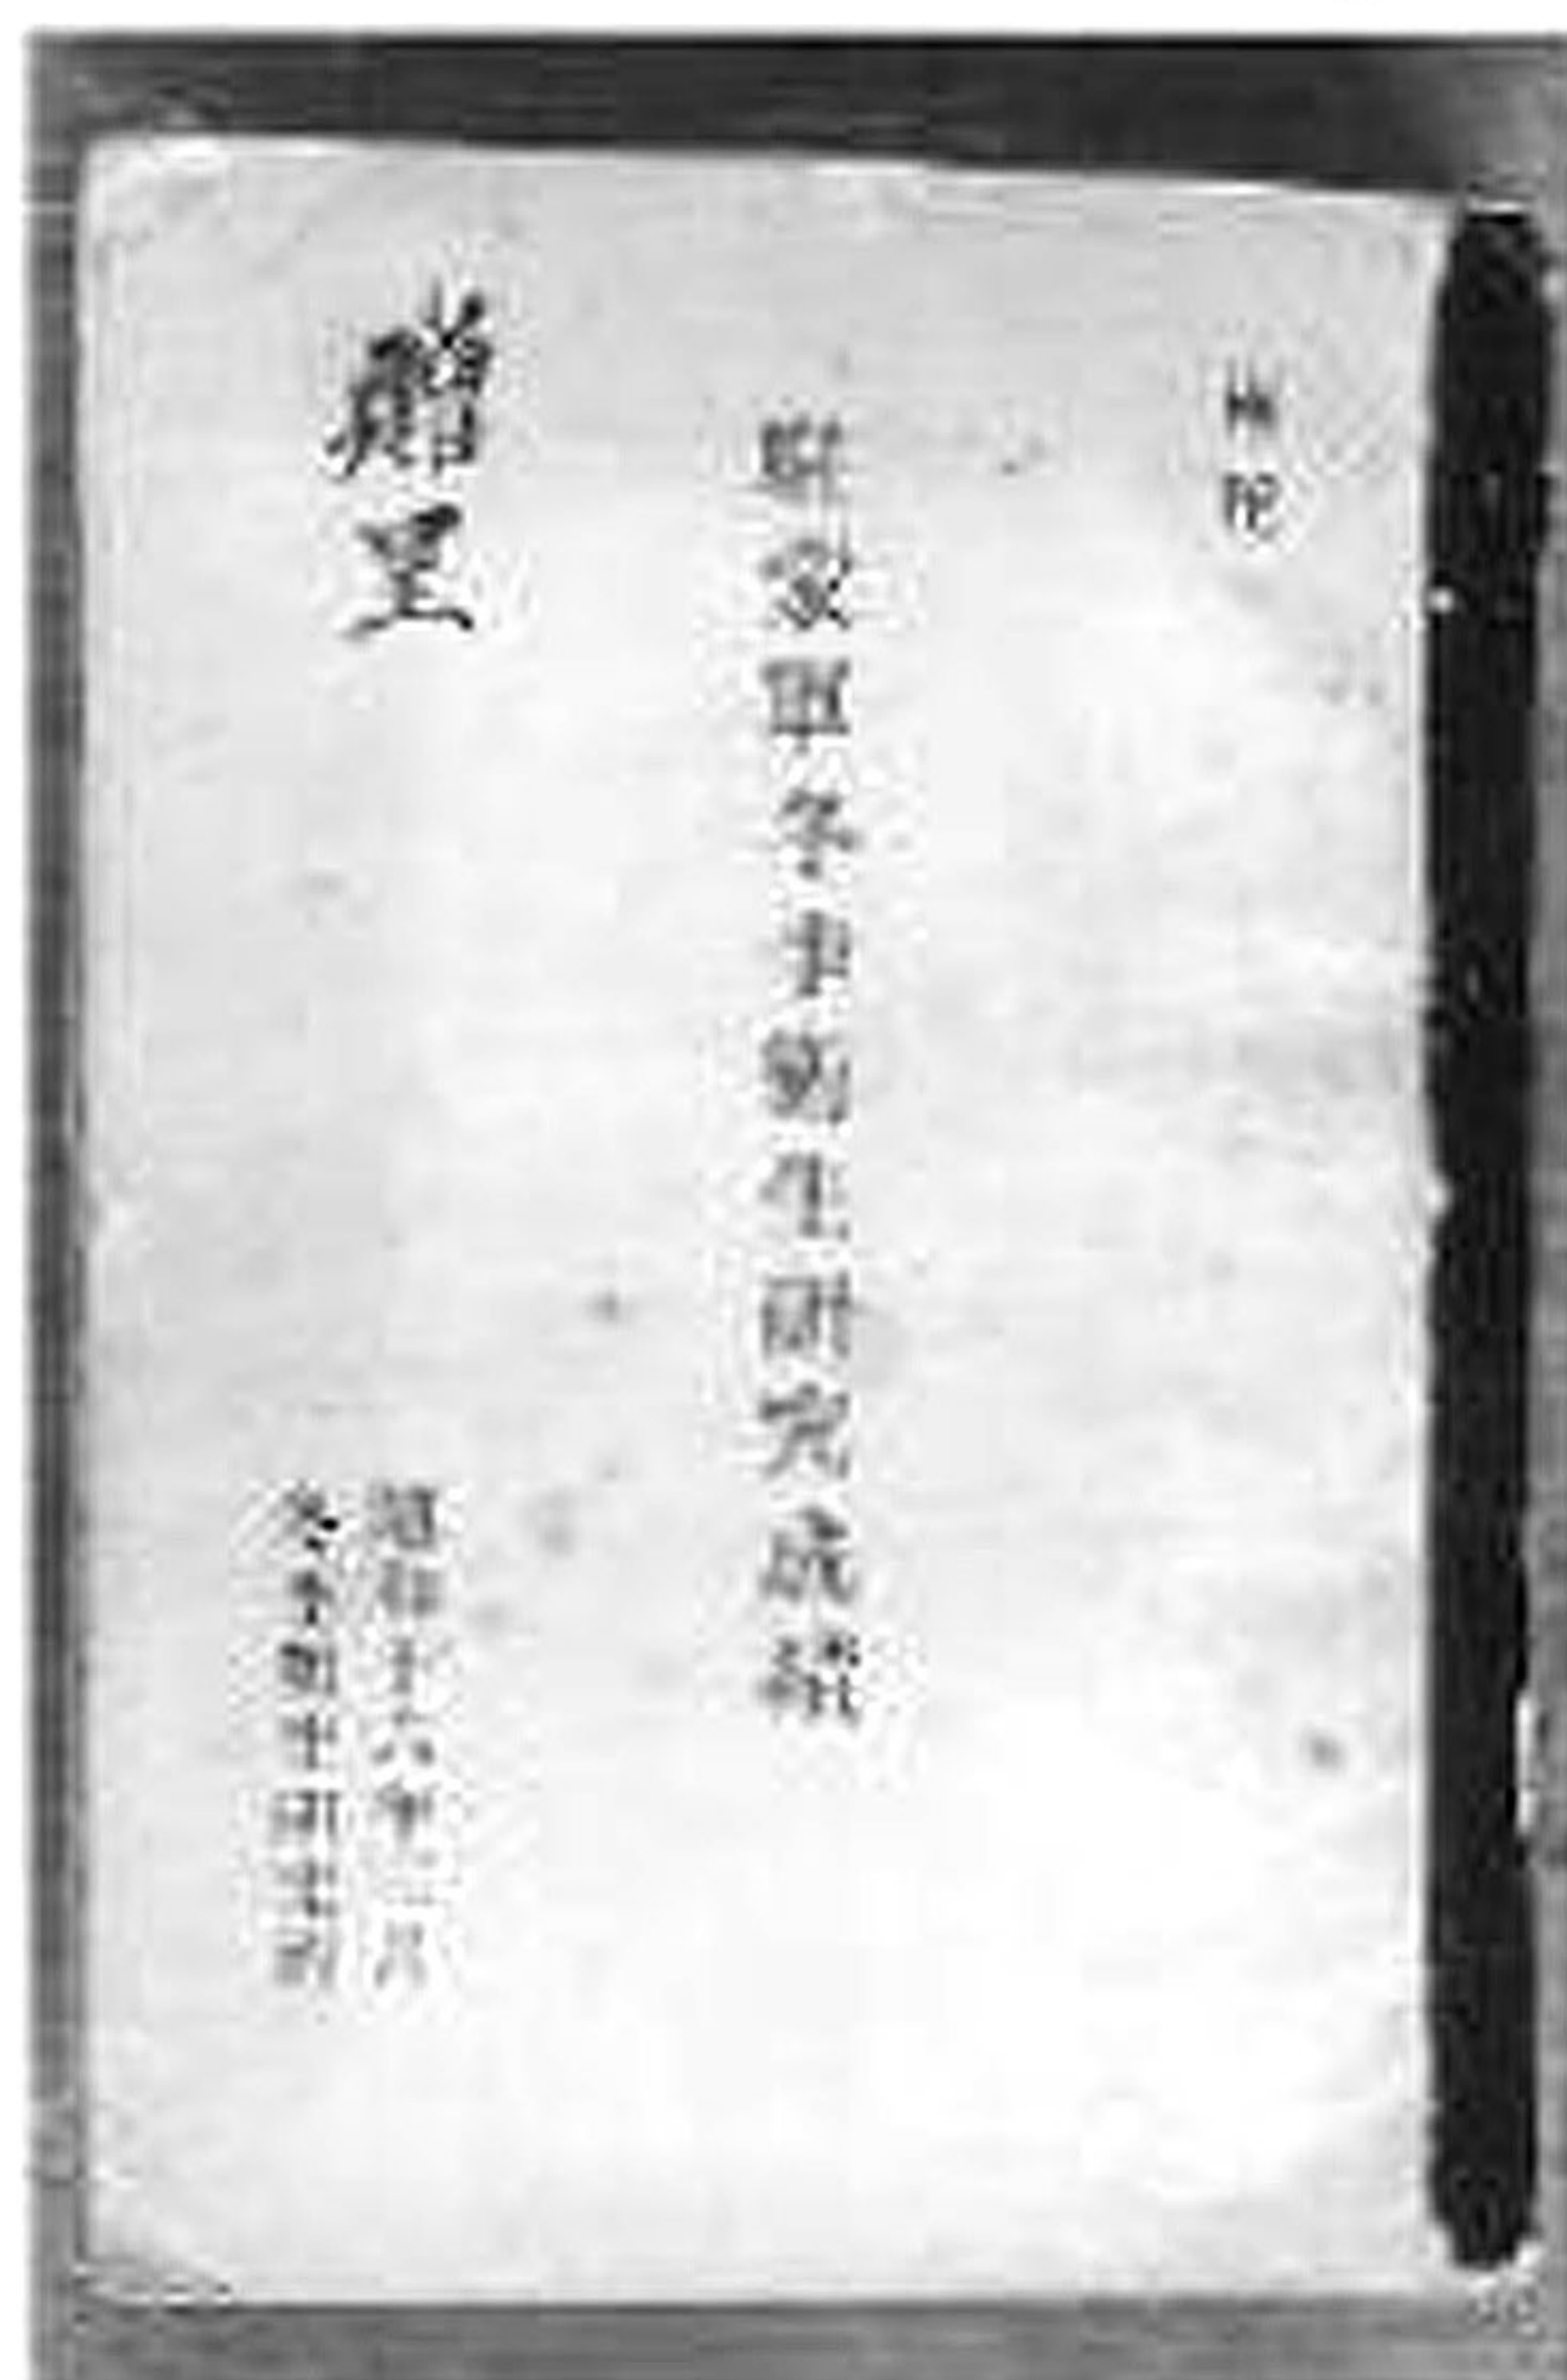 極秘
駐蒙軍冬季衛生研究成績
昭和十六年三月
冬季衛生研究班